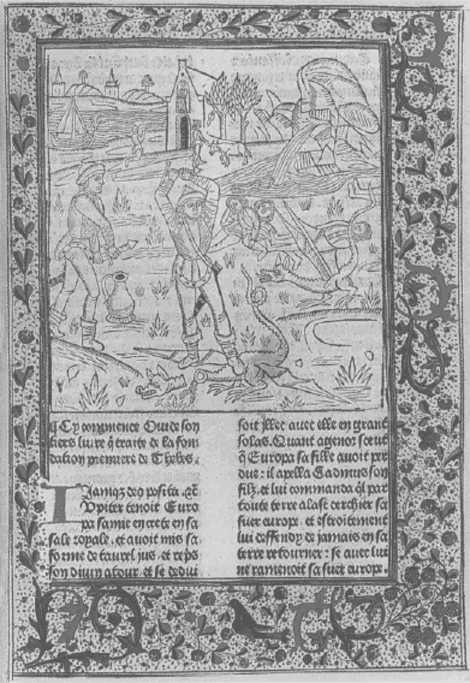 ¶Cy commence Ouide son
tiers liure q̃ traite de la fon
dation premiere de Thebes.
IAmqz deo posita. ⁊c̃
Vpiter tenoit Euro
pa samie en crete en sa
sale royale, et auoit mis sa
forme de taurel jus, et reps
son diuin atour. et se dedui
soit illec auec elle en grant
solas. Quant agenor sceut
q̃ Europa sa fille auoit per
due: il apella Cadmus son
filz, et lui commanda q̃l par
toute terre alast cerchier sa
suer europe. et estroitement
lui deffendy de jamais en sa
terre retourner: se auec lui
ne ramenoit sa suer europe.